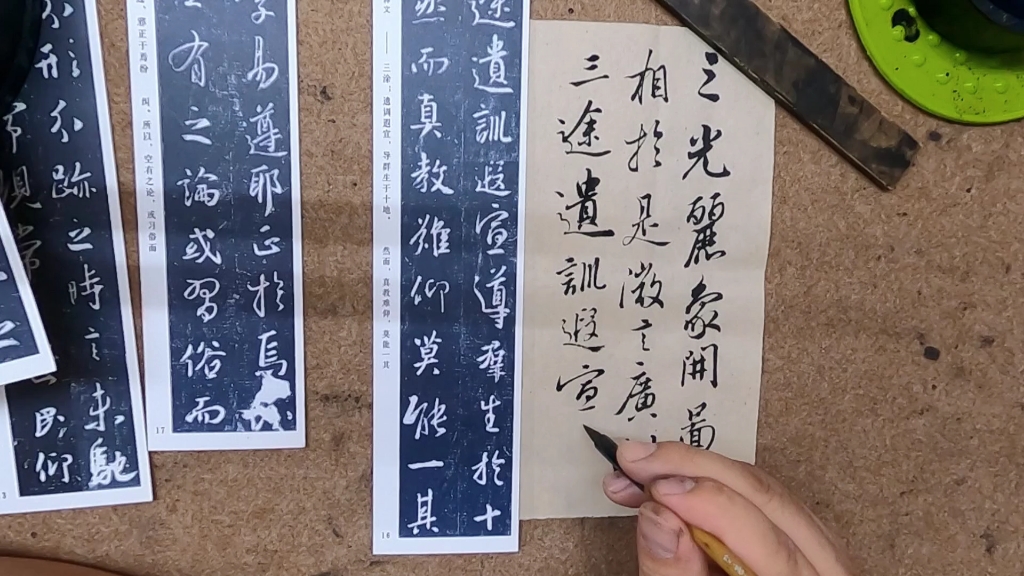 三光麗象開圖
相於是微言廣
三途遺訓遐宣
途遺訓遐宣導羣生於十
然而真教難仰莫能一其
三涂;遗训遐宣,导群生于十地。 然而,真教难仰,莫能一其
16
學易遵耶正於焉
有之論或習俗而
邪正于焉纷 纠。所以,空有之论,或习俗而
17
形分跡之時言未馳
現常
民仰